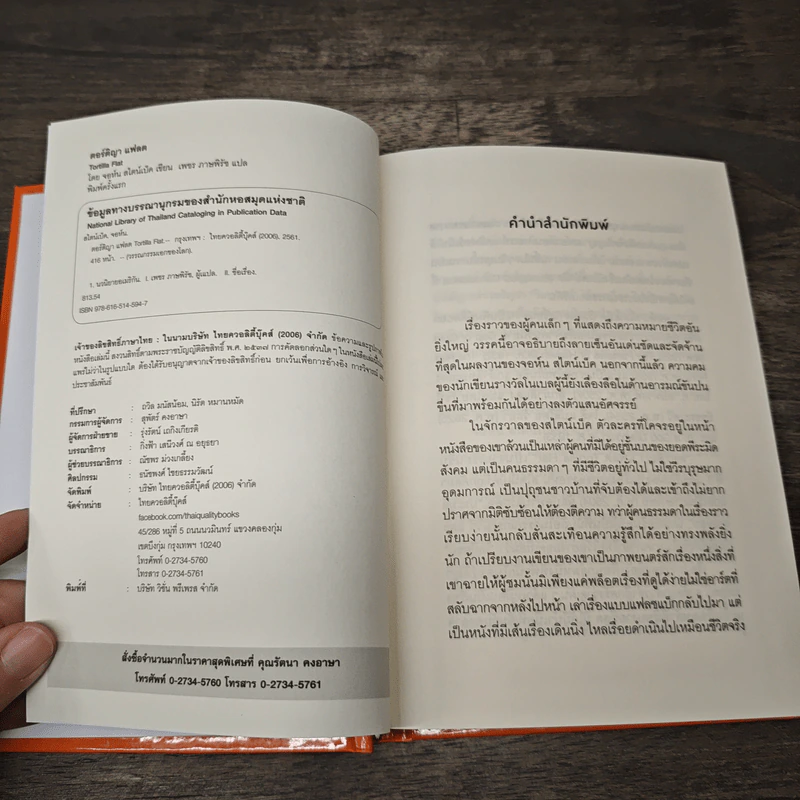 ตอร์ติญา แฟลต
Tortilla Flat
โดย จอห์น สไตน์เบ็ค เขียน เพชร ภาษพิรัช แปล
พิมพ์ครั้งแรก
ข้อมูลทางบรรณานุกรมของสำนักหอสมุดแห่งชาติ
National Library of Thailand Cataloging in Publication Data
สไตน์เบ็ค, จอห์น.
ตอร์ติญา แฟลต Tortilla Flat.-- กรุงเทพฯ : ไทยควอลิตี้บุ๊คส์ (2006), 2561.
416 หน้า. -- (วรรณกรรมเอกของโลก).
1. นวนิยายอเมริกัน. I. เพชร ภาษพิรัช, ผู้แปล. II. ชื่อเรื่อง.
813.54
ISBN 978-616-514-594-7
เจ้าของลิขสิทธิ์ภาษาไทย : ในนามบริษัท ไทยควอลิตี้บุ๊คส์ (2006) จำกัด ข้อความและรูปภาพใน
หนังสือเล่มนี้ สงวนสิทธิ์ตามพระราชบัญญัติลิขสิทธิ์ พ.ศ. ๒๕๓๗ การคัดลอกส่วนใดๆ ในหนังสือเล่มนี้
แพร่ไม่ว่าในรูปแบบใด ต้องได้รับอนุญาตจากเจ้าของลิขสิทธิ์ก่อน ยกเว้นเพื่อการอ้างอิง การวิจารณ์ และ
ประชาสัมพันธ์
ที่ปรึกษา : ถวิล มนัสน้อม, นิรัต หมานหมัด
กรรมการผู้จัดการ : สุพัตร์ คงอาษา
ผู้จัดการฝ่ายขาย : รุ่งรัตน์ เถกิงเกียรติ
บรรณาธิการ : กิ่งฟ้า เสนีวงศ์ ณ อยุธยา
ผู้ช่วยบรรณาธิการ : ณัชพร ม่วงเกลี้ยง
ศิลปกรรม : ธนัชพงศ์ ไชยธรรมวัฒน์
จัดพิมพ์ : บริษัท ไทยควอลิตี้บุ๊คส์ (2006) จำกัด
จัดจำหน่าย : ไทยควอลิตี้บุ๊คส์
facebook.com/thaiqualitybooks
45/286 หมู่ที่ 5 ถนนนวมินทร์ แขวงคลองกุ่ม
เขตบึงกุ่ม กรุงเทพฯ 10240
โทรศัพท์ 0-2734-5760
โทรสาร 0-2734-5761
พิมพ์ที่ : บริษัท วิชั่น พรีเพรส จำกัด
สั่งซื้อจำนวนมากในราคาสุดพิเศษที่ คุณรัตนา คงอาษา
โทรศัพท์ 0-2734-5760 โทรสาร 0-2734-5761
คำนำสำนักพิมพ์
เรื่องราวของผู้คนเล็กๆ ที่แสดงถึงความหมายชีวิตอัน
ยิ่งใหญ่ วรรคนี้อาจอธิบายถึงลายเซ็นอันเด่นชัดและจัดจ้าน
ที่สุดในผลงานของจอห์น สไตน์เบ็ค นอกจากนี้แล้ว ความคม
ของนักเขียนรางวัลโนเบลผู้นี้ยังเลื่องลือในด้านอารมณ์ขันปน
ขื่นที่มาพร้อมกันได้อย่างลงตัวแสนอัศจรรย์
ในจักรวาลของสไตน์เบ็ค ตัวละครที่โคจรอยู่ในหน้า
หนังสือของเขาล้วนเป็นเหล่าผู้คนที่มิได้อยู่ชั้นบนของยอดพีระมิด
สังคม แต่เป็นคนธรรมดาๆ ที่มีชีวิตอยู่ทั่วไป ไม่ใช่วีรบุรุษมาก
อุดมการณ์ เป็นปุถุชนชาวบ้านที่จับต้องได้และเข้าถึงไม่ยาก
ปราศจากมิติซับซ้อนให้ต้องตีความ ทว่าผู้คนธรรมดาในเรื่องราว
เรียบง่ายนั้นกลับสั่นสะเทือนความรู้สึกได้อย่างทรงพลังยิ่ง
นัก ถ้าเปรียบงานเขียนของเขาเป็นภาพยนตร์สักเรื่องหนึ่งสิ่งที่
เขาฉายให้ผู้ชมนั้นมิเพียงแค่พล็อตเรื่องที่ดูได้ง่ายไม่ใช่อาร์ตที่
สลับฉากจากหลังไปหน้า เล่าเรื่องแบบแฟลชแบ็กกลับไปมา แต่
เป็นหนังที่มีเส้นเรื่องเดินนิ่ง ไหลเรื่อยดำเนินไปเหมือนชีวิตจริง